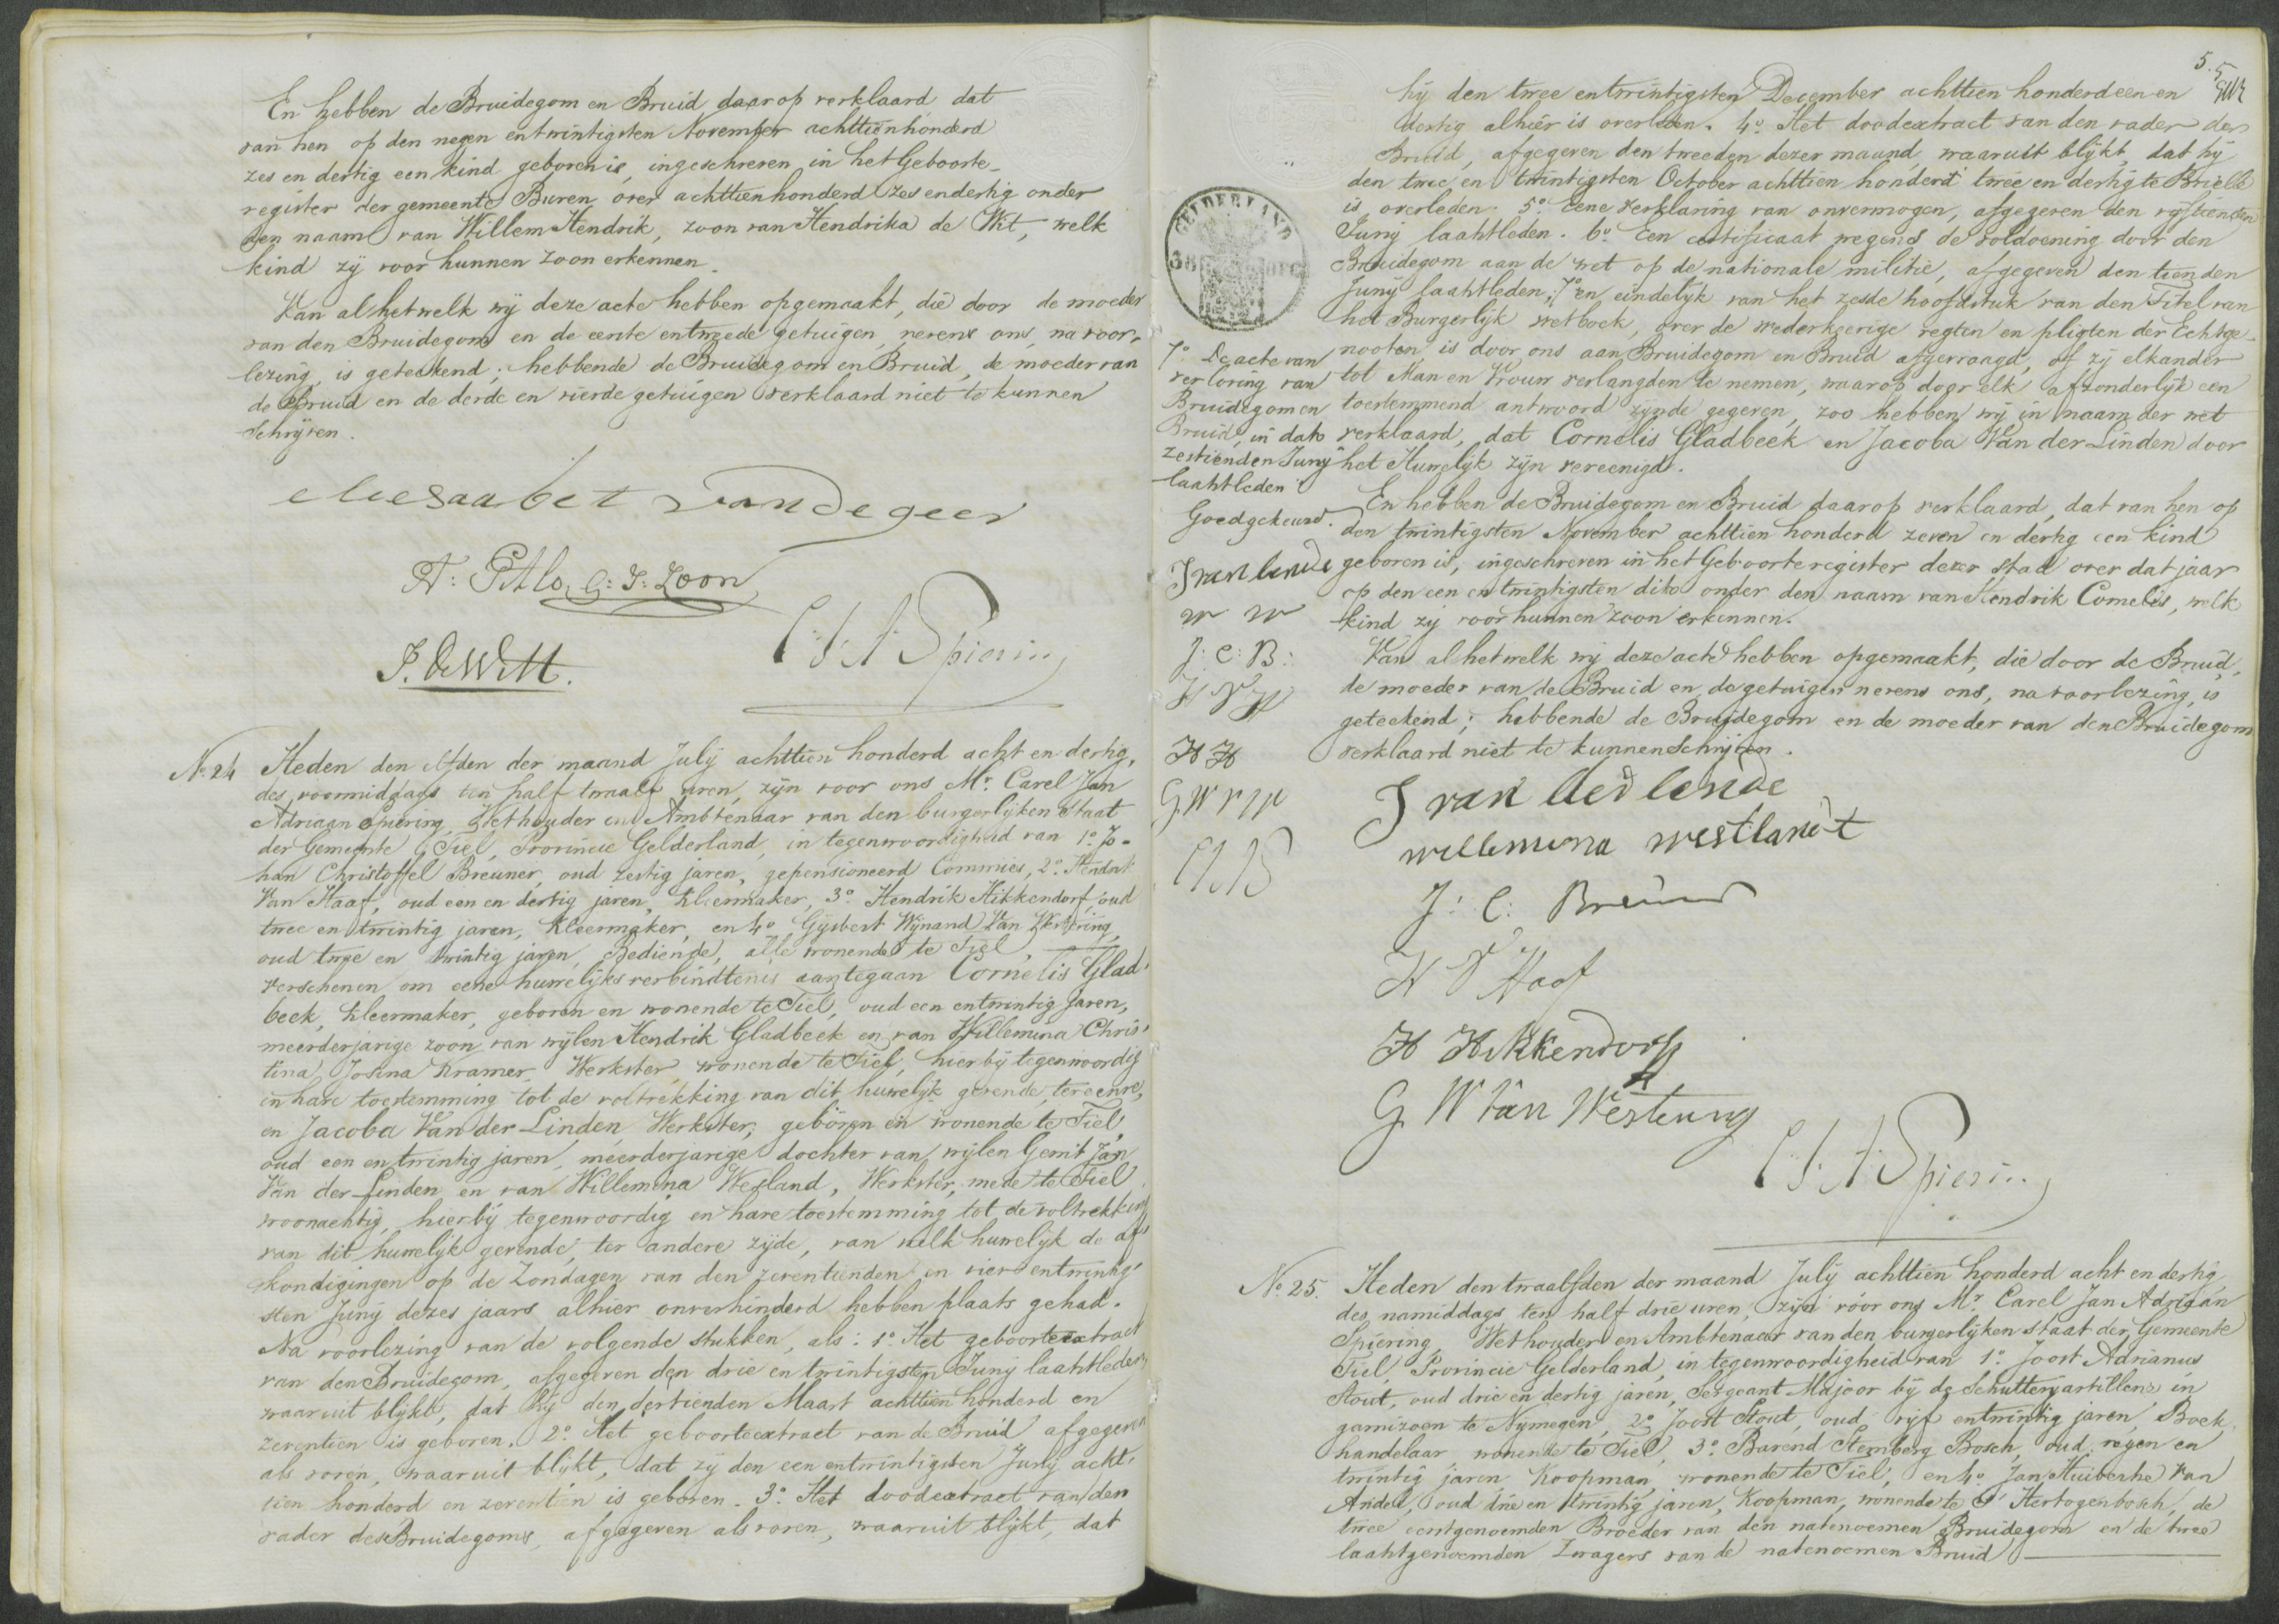 En hebben de Bruidegom en Bruid daarop verklaard dat
van hen op den negen entwintigsten November achttienhonderd
zes en dertig een kind geboren is, ingeschreven in het Geboorte-
register der gemeente Buren over achttienhonderd zes endertig onder
den naam van Willem Hendrik, zoon van Hendrika de Wit, welk
kind zy voor hunnen zoon erkennen.
Van al hetwelk wy deze acte hebben opgemaakt, die door de moeder
van den Bruidegom en de eerste entweede getuigen, nevens ons, na voor-
lezing, is geteekend; hebbende de Bruidegom en Bruid, de moeder van
de Bruid en de derde en vierde getuigen verklaard niet te kunnen
schryven.
eliesaabet vandegeer
A: Pitlo, C: J: Zoon
J. de Witt.
C. J. A. Spiering
No. 24 Heden den elfden der maand July achttien honderd acht en dertig,
des voormiddags ten half twaalf uren, zyn voor ons Mr. Carel Jan
Adriaan Spiering, Wethouder en Ambtenaar van den burgerlyken Staat
der Gemeente Tiel, Provincie Gelderland, in tegenwoordigheid van 1o. Jo-
han Christoffel Breuner, oud zestig jaren, gepensioneerd Commies, 2o. Hendrik
Van Haaf, oud een en dertig jaren, kleermaker, 3o. Hendrik Hikkendorf, oud
twee en twintig jaren, Kleermaker, en 4o. Gysbert Wynand Van Westering,
oud twee en twintig jaren, Bediende, alle wonende te Tiel,
verschenen om eene huwelyks verbindtenis aantegaan Cornelis Glad-
beek, kleermaker, geboren en wonende te Tiel, oud een entwintig jaren,
meerderjarige zoon van wylen Hendrik Gladbeek en van Willemina Chris-
tina Josina Kramer, Werkster, wonende te Tiel, hierby tegenwoordig
en hare toestemming tot de voltrekking van dit huwelyk gevende, ter eenre,
en Jacoba Van der Linden, Werkster, geboren en wonende te Tiel,
oud een en twintig jaren, meerderjarige dochter van wylen Gerrit Jan
Van der Linden en van Willemina Wesland, Werkster, mede te Tiel
woonachtig, hierby tegenwoordig en hare toestemming tot de voltrekking
van dit huwelyk gevende, ter andere zyde, van welk huwelyk de af-
kondigingen op de Zondagen van den zeventienden en vier entwintig-
sten Juny dezes jaars alhier onverhinderd hebben plaats gehad.
Na voorlezing van de volgende stukken, als: 1o. Het geboorteextract
van den Bruidegom, afgegeven den drie en twintigsten Juny laahtleden,
waaruit blykt, dat hy den dertienden Maart achttien honderd en
zeventien is geboren. 2o. Het geboorteextract van de Bruid afgegeven
als voren, waaruit blykt, dat zy den een entwintigsten Juny acht-
tien honderd en zeventien is geboren. 3o. Het doodextract van den
vader des Bruidegoms, afgegeven als voren, waaruit blykt, dat
5.
hy den twee entwintigsten December achttien honderd een en
dertig alhier is overleden. 4o. Het doodextract van den vader der
Bruid, afgegeven den tweeden dezer maand, waaruit blykt, dat hy
den twee en twintigsten October achttien honderd twee en dertig te Brielle
is overleden. 5o. Eene verklaring van onvermogen, afgegeven den vyftienden
Juny laahtleden. 6o. Een certificaat wegens de voldoening door den
Bruidegom aan de wet op de nationale militie, afgegeven den tienden
Juny laahtleden, 7o. en eindelyk van het zesde hoofdstuk van den Titel van
het Burgerlyk wetboek, over de wederkeerige regten en pligten der Echtge-
nooten, is door ons aan Bruidegom en Bruid afgevraagd, of zy elkander
tot Man en Vrouw verlangden te nemen, waarop door elk afzonderlyk een
toestemmend antwoord zynde gegeven, zoo hebben wy in naam der wet
verklaard, dat Cornelis Gladbeek en Jacoba Van der Linden door
het Huwelyk zyn vereenigd.
GELDERLAND
7o. De acte van
verloving van
Bruidegom en
Bruid, in dato
zestienden Juny
laahtleden
Goedgekeurd.
J van lende
W W
J: C: B:
H V H
H H
G W V W
En hebben de Bruidegom en Bruid daarop verklaard, dat van hen op
den twintigsten November achttien honderd zeven en dertig een kind
geboren is, ingeschreven in het Geboorteregister dezer stad over dat jaar
op den een en twintigsten dito onder den naam van Hendrik Cornelis, welk
kind zy voor hunnen zoon erkennen.
Van al hetwelk wy deze acte hebben opgemaakt, die door de Bruid,
de moeder van de Bruid en de getuigen nevens ons, na voorlezing, is
geteekend; hebbende de Bruidegom en de moeder van den Bruidegom
verklaard niet te kunnen schryven.
J van der lende
willemina westlandt
J: C: Breuner
H V Haaf
H Hikkendorf
G W van Westering
C. J. A. Spiering
No. 25. Heden den twaalfden der maand July achttien honderd acht en dertig
des namiddags ten half drie uren, zyn voor ons Mr. Carel Jan Adriaan
Spiering, Wethouder en Ambtenaar van den burgerlyken staat der Gemeente
Tiel, Provincie Gelderland, in tegenwoordigheid van 1o. Joost Adrianus
Stout, oud drie en dertig jaren, Sergeant Majoor by de Schutteryartillerie in
garnizoen te Nymegen, 2o. Joost Stout, oud vyf entwintig jaren, Boek
handelaar, wonende te Tiel, 3o. Barend Stemberg Bosch, oud negen en
twintig jaren, Koopman, wonende te Tiel, en 4o. Jan Huibershe Van
Andel, oud drie en twintig jaren, Koopman, wonende te s' Hertogenbosch, de
twee eerstgenoemden Broeder van den natenoemen Bruidegom en de twee
laahtgenoemden Zwagers van de natenoemen Bruid